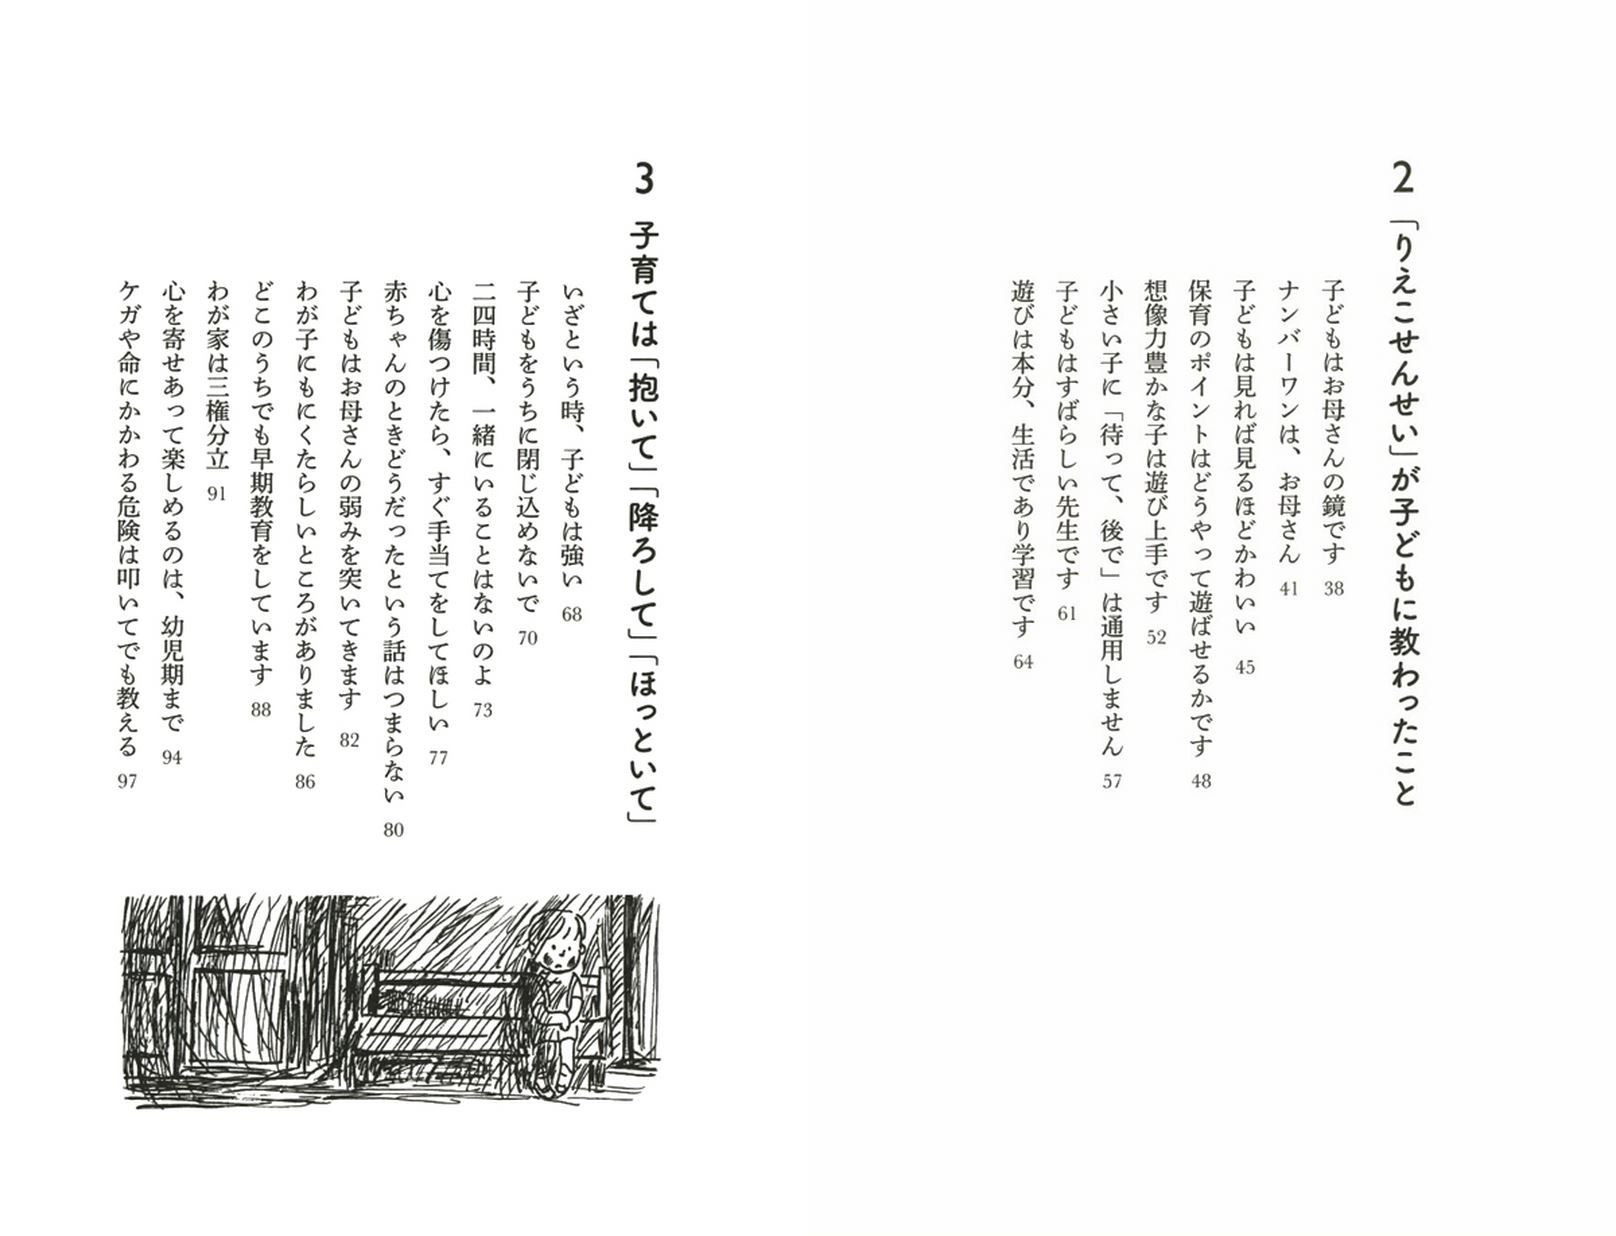 2 「りえこせんせい」が子どもに教わったこと
子どもはお母さんの鏡です 38
ナンバーワンは、お母さん 41
子どもは見れば見るほどかわいい 45
保育のポイントはどうやって遊ばせるかです 48
想像力豊かな子は遊び上手です 52
小さい子に「待って、後で」は通用しません 57
子どもはすばらしい先生です 61
遊びは本分、生活であり学習です 64
3 子育ては「抱いて」「降ろして」「ほっといて」
いざという時、子どもは強い 68
子どもをうちに閉じ込めないで 70
二四時間、一緒にいることはないのよ 73
心を傷つけたら、すぐ手当てをしてほしい 77
赤ちゃんのときどうだったという話はつまらない 80
子どもはお母さんの弱みを突いてきます 82
わが子にもにくたらしいところがありました 86
どこのうちでも早期教育をしています 88
わが家は三権分立 91
心を寄せあって楽しめるのは、幼児期まで 94
ケガや命にかかわる危険は叩いてでも教える 97